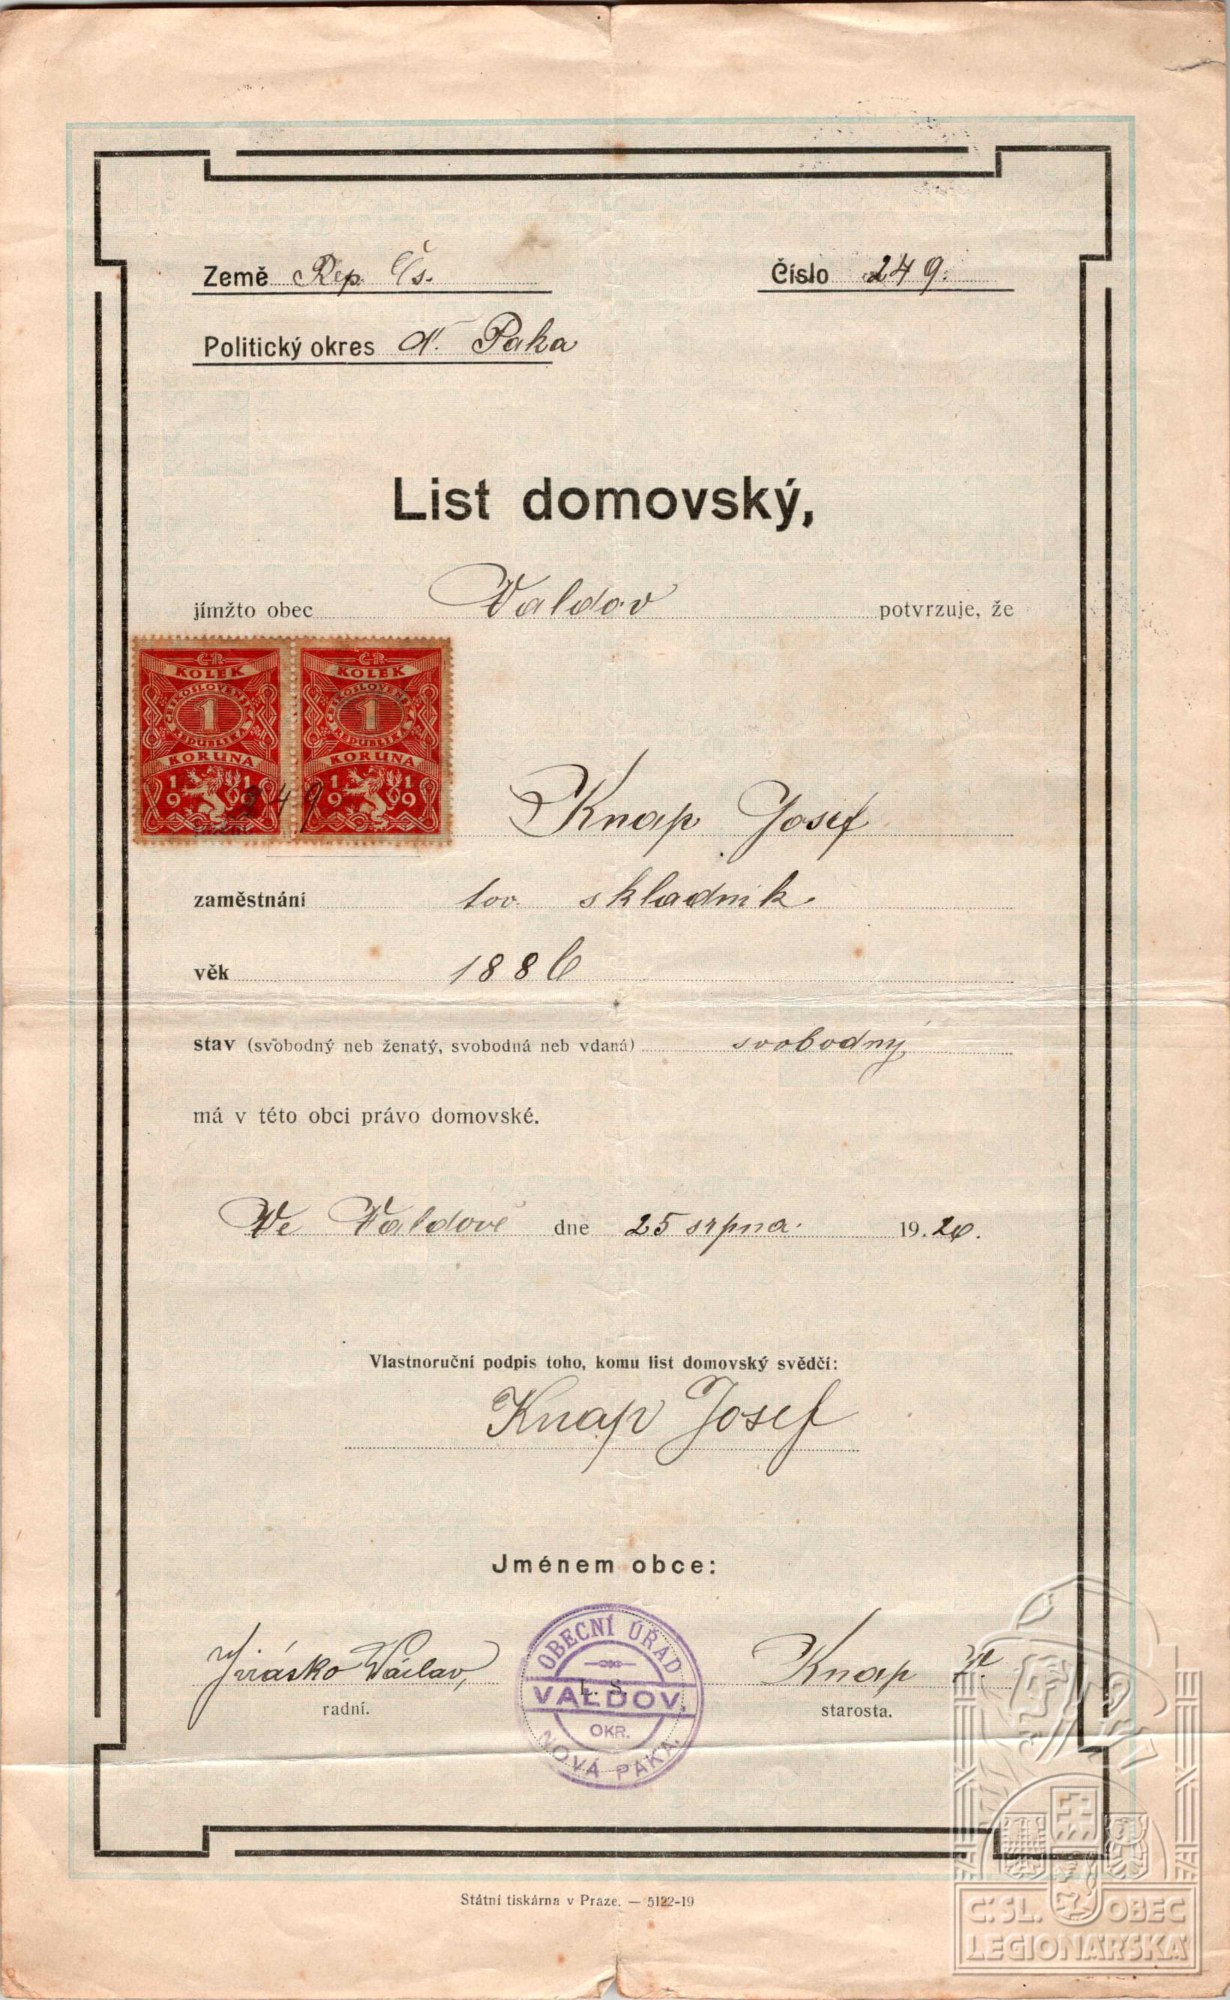 Země Rep. Čs.
Číslo 249.
Politický okres N. Paka
List domovský,
jímžto obec Valdov potvrzuje, že
ČR ČR
KOLEK KOLEK
ČESKOSLOVENSKÁ ČESKOSLOVENSKÁ
1 1
REPUBLIKA REPUBLIKA
KORUNA KORUNA
1 1 1 1
9 9 9 9
249
Knap Josef
zaměstnání tov. skladník.
věk 1886
stav (svobodný neb ženatý, svobodná neb vdaná) svobodný
má v této obci právo domovské.
We Valdově dne 25 srpna 1920.
Vlastnoruční podpis toho, komu list domovský svědčí:
Knap Josef
Jménem obce:
Jirásko Václav, Knap
radní. L. S. starosta.
OBECNÍ ÚŘAD
VALDOV,
OKR.
NOVÁ PAKA.
Státní tiskárna v Praze. — 5122-19
Č. SL. OBEC
LEGIONÁŘSKÁ